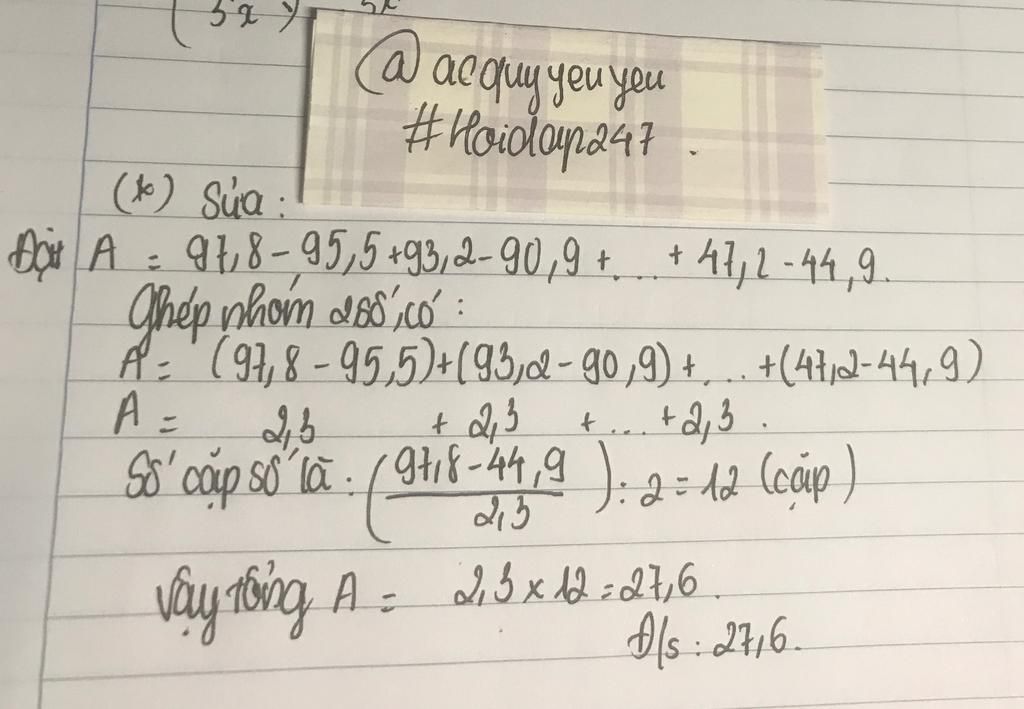 (5x) 5x
@ acquyyeuyeu
#Hoidap247.
(*) Sửa:
Đặt A = 97,8 - 95,5 + 93,2 - 90,9 + ... + 47,2 - 44,9.
Ghép nhóm 2 số, có:
A = (97,8 - 95,5) + (93,2 - 90,9) + ... + (47,2 - 44,9)
A = 2,3 + 2,3 + ... + 2,3.
Số cặp số là: ((97,8 - 44,9)/2,3) : 2 = 12 (cặp)
Vậy tổng A = 2,3 x 12 = 27,6.
Đ/s: 27,6.